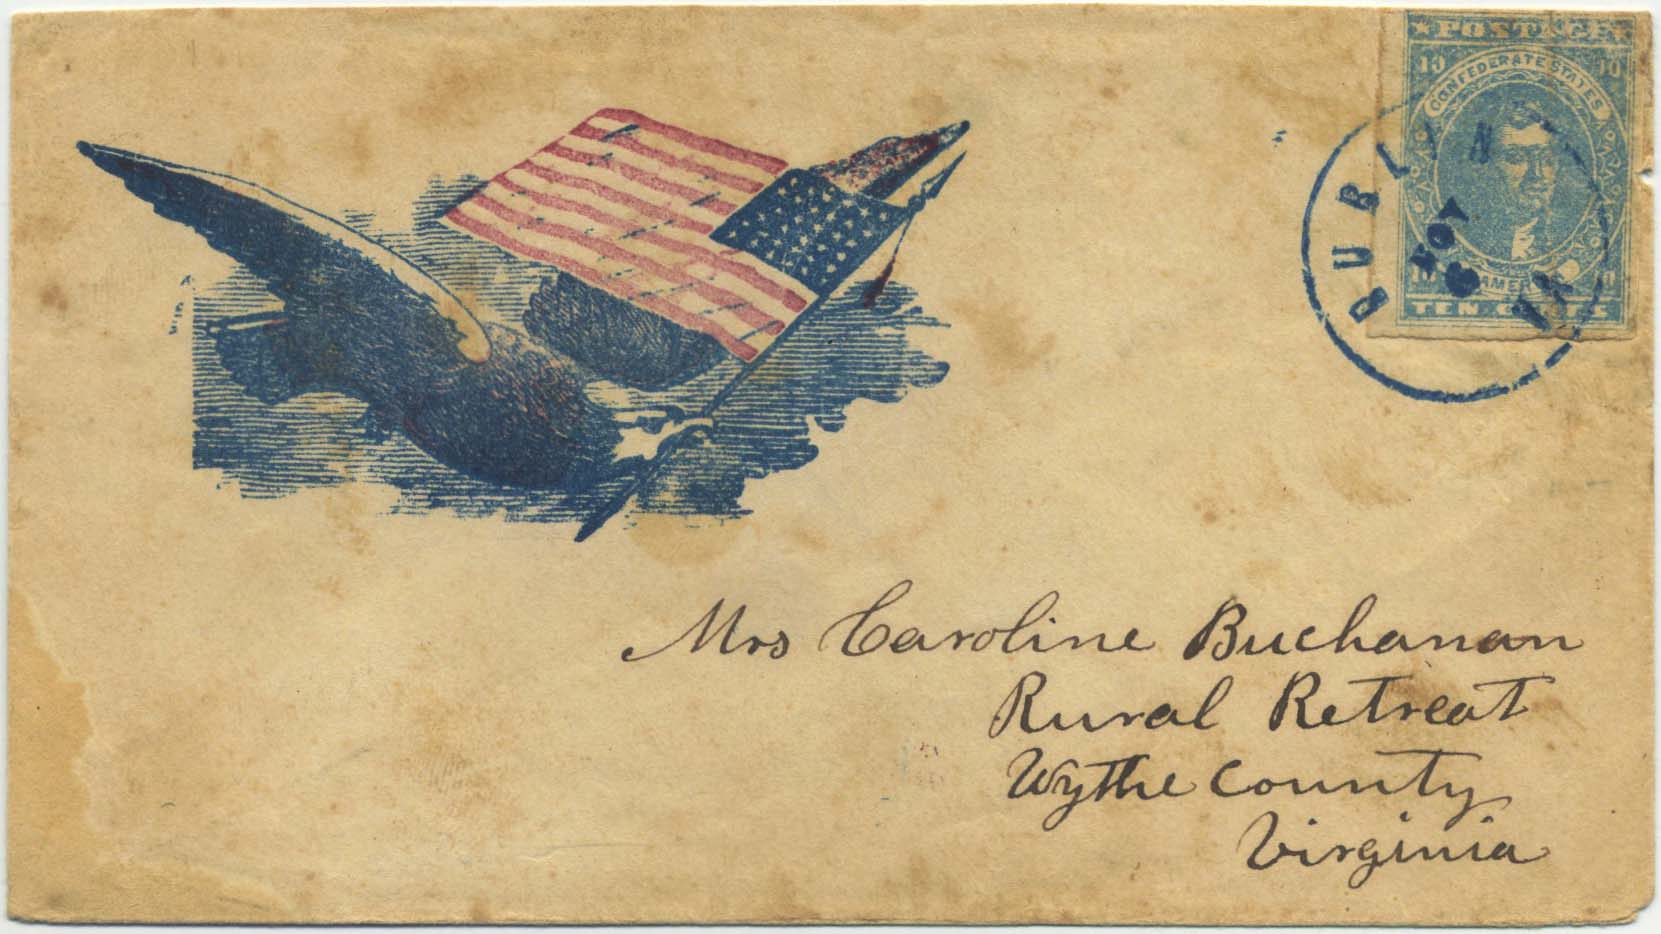 ★ POSTAGE ★
10 10
CONFEDERATE STATES
AMERICA
10 10
TEN CENTS
DUBLIN
NOV
6
VA
Mrs Caroline Buchanan
Rural Retreat
Wythe County
Virginia